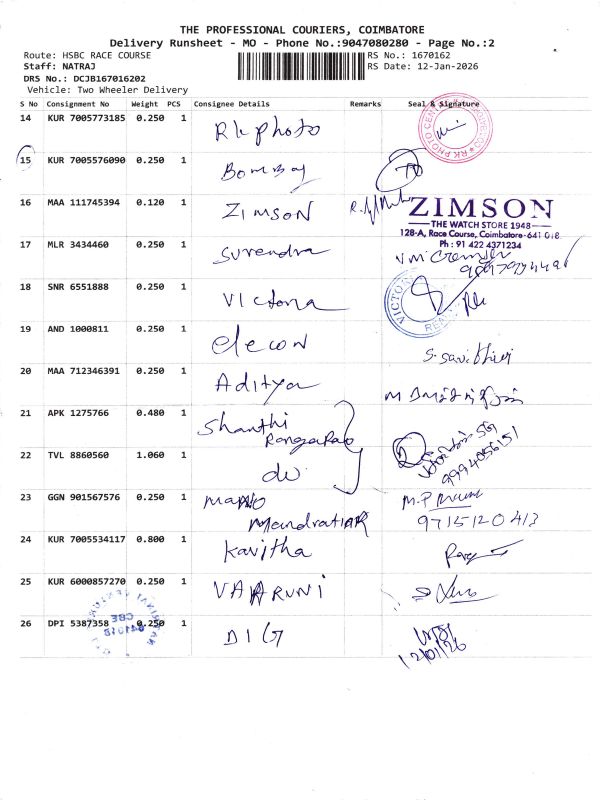 THE PROFESSIONAL COURIERS, COIMBATORE
Delivery Runsheet - MO - Phone No.:9047080280 - Page No.:2
Route: HSBC RACE COURSE
RS No.: 1670162
Staff: NATRAJ
RS Date: 12-Jan-2026
DRS No.: DCJB167016202
Vehicle: Two Wheeler Delivery
S No Consignment No Weight PCS Consignee Details Remarks Seal & Signature
14 KUR 7005773185 0.250 1 Rk photo
15 KUR 7005576090 0.250 1 Bombay
16 MAA 111745394 0.120 1 ZIMSON
ZIMSON
THE WATCH STORE 1948
128-A, Race Course, Coimbatore-641 018.
Ph : 91 422 4371234
17 MLR 3434460 0.250 1 Surendra
18 SNR 6551888 0.250 1 Victoria
VICTOR
19 AND 1000811 0.250 1 elecon
S. Savithiri
20 MAA 712346391 0.250 1 Aditya
21 APK 1275766 0.480 1 Shanthi
RangaRao
22 TVL 8860560 1.060 1 do
9994056151
23 GGN 901567576 0.250 1 mano
mandratiar
M.P
9715120413
24 KUR 7005534117 0.800 1 Kavitha
25 KUR 6000857270 0.250 1 VAARUNI
26 DPI 5387358 0.250 1 DIG
12/01/26